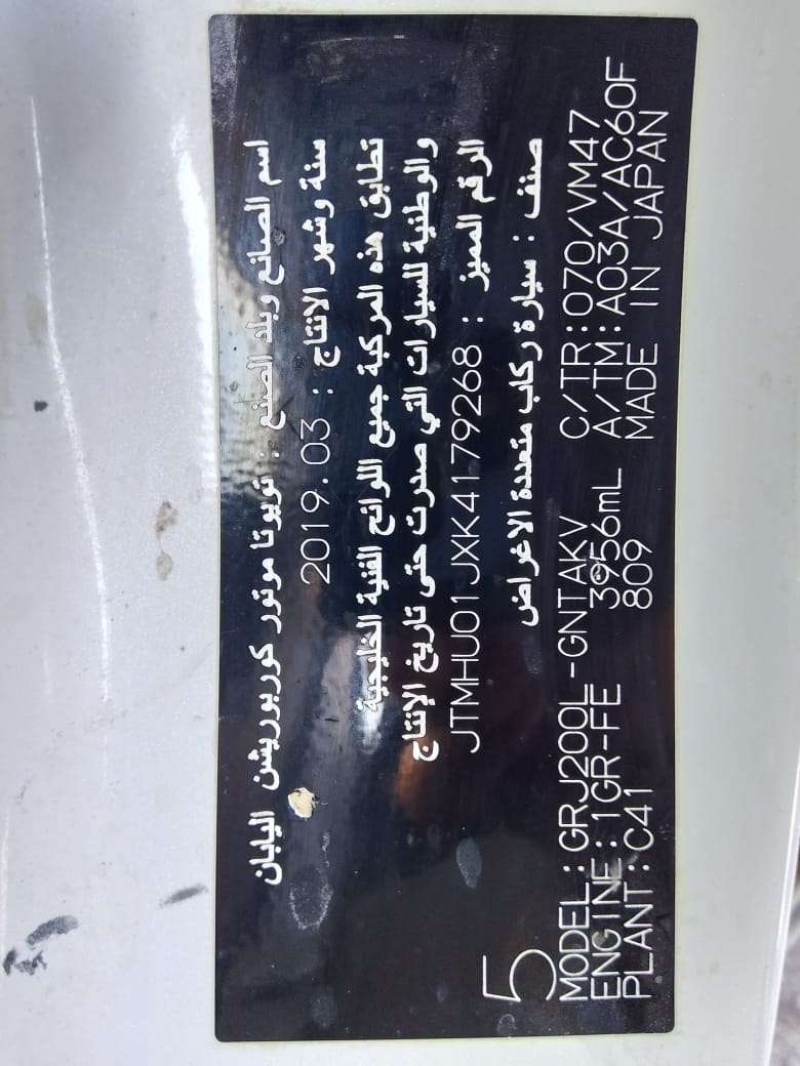 اسم الصانع وبلد الصنع : تويوتا موتور كوربوريشن اليابان
سنة وشهر الانتاج : 2019.03
تطابق هذه المركبة جميع اللوائح الفنية الخليجية
والوطنية للسيارات التي صدرت حتى تاريخ الإنتاج
الرقم المميز : JTMHU01JXK4179268
صنف : سيارة ركاب متعددة الاغراض
5
MODEL:GRJ200L-GNTAKV C/TR:070/VM47
ENGINE:1GR-FE 3956mL A/TM:A03A/AC60F
PLANT:C41 809 MADE IN JAPAN